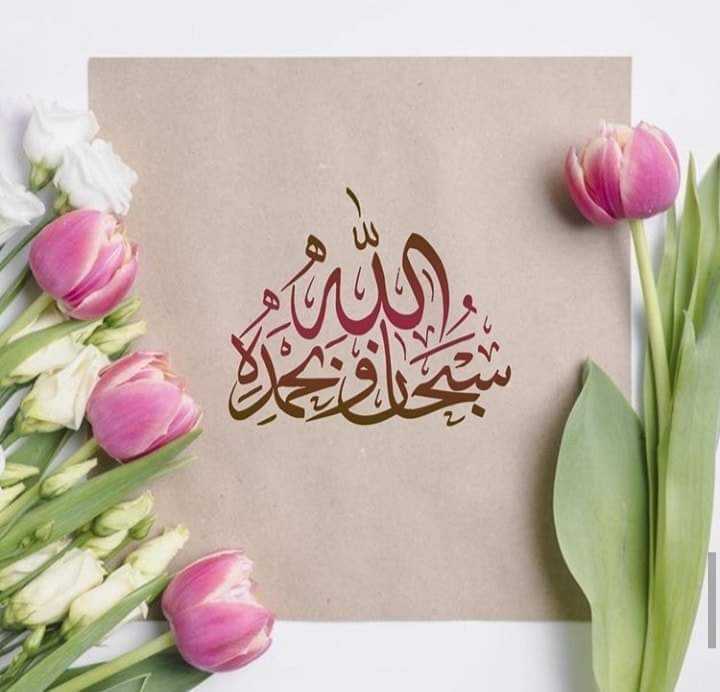 سُبْحَانَ اللهِ وَبِحَمْدِهِ